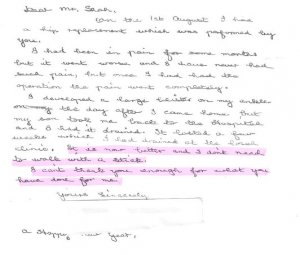 Dear Mr. Shah,
On the 1st August I had
a hip replacement which was performed by
you.
I had been in pain for some months
but it went worse and I have never had
such pain, but once I had had the
operation the pain went completely.
I developed a large blister on my ankle
the day after I came home but
my son took me back to the Hospital
and I had it drained. It lasted a few
weeks which I had drained at the local
clinic. It is now better and I don't need
to walk with a stick.
I cant thank you enough for what you
have done for me.
Yours Sincerely
a Happy New Year.